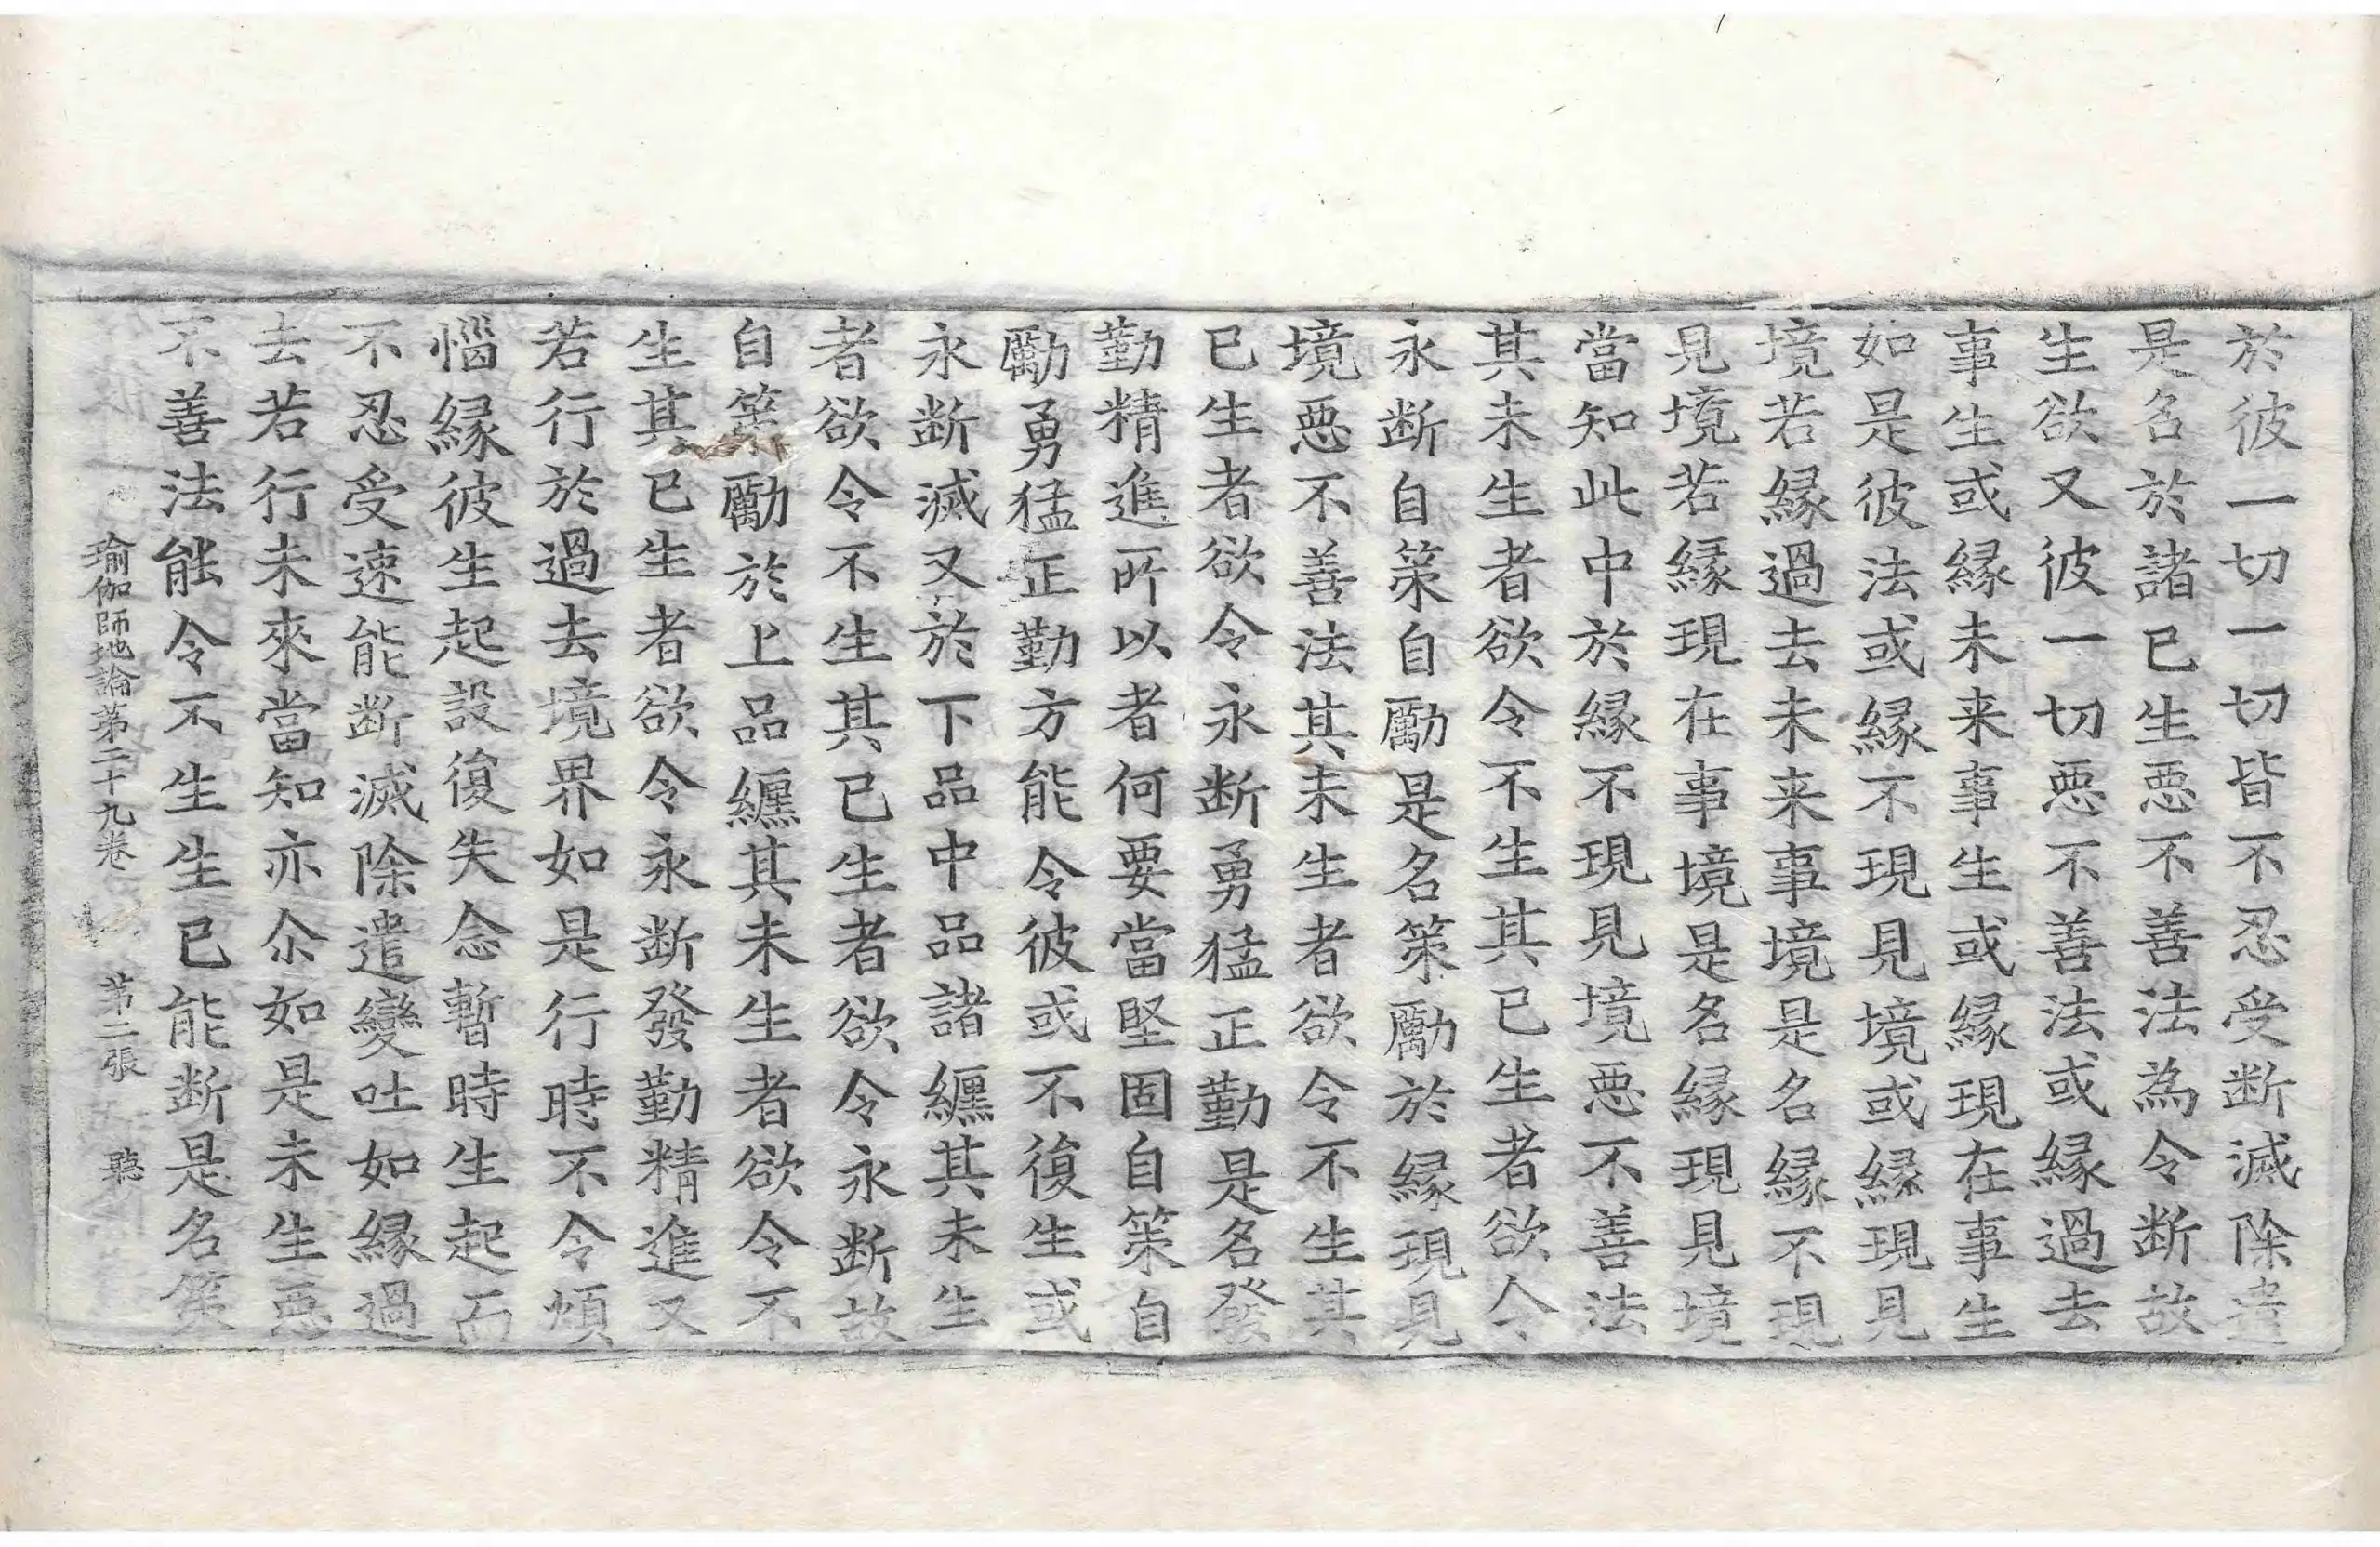 於彼一切一切皆不忍受断滅除遣
是名於諸已生悪不善法為令断故
生欲又彼一切悪不善法或縁過去
事生或縁未来事生或縁現在事生
如是彼法或縁不現見境或縁現見
境若縁過去未来事境是名縁不現
見境若縁現在事境是名縁現見境
當知此中於縁不現見境悪不善法
其未生者欲令不生其已生者欲令
永断自策自勵是名策勵於縁現見
境悪不善法其未生者欲令不生其
已生者欲令永断勇猛正勤是名發
勤精進所以者何要當堅固自策自
勵勇猛正勤方能令彼或不復生或
永断滅又於下品中品諸纏其未生
者欲令不生其已生者欲令永断故
自策勵於上品纏其未生者欲令不
生其已生者欲令永断發勤精進又
若行於過去境界如是行時不令煩
惱縁彼生起設復失念暫時生起而
不忍受速能断滅除遣變吐如縁過
去若行未來當知亦尒如是未生悪
不善法能令不生生已能断是名策
瑜伽師地論第二十九卷 第二張 聽